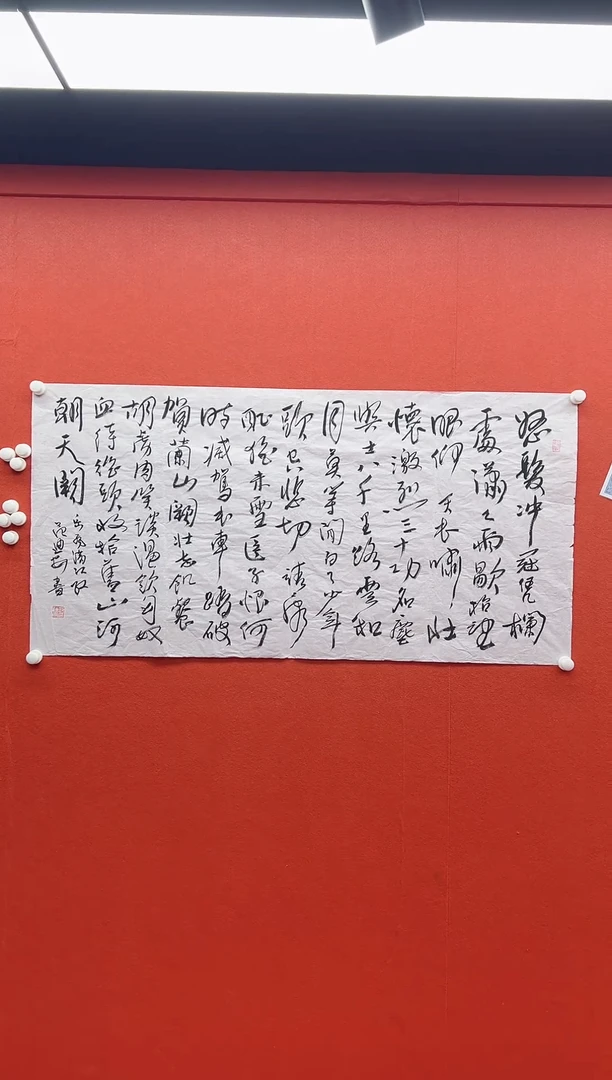 怒髮冲冠凭欄
處瀟々雨歇抬望
眼仰天長嘯壯
懷激烈三十功名塵
與土八千里路雲和
月莫等閒白了少年
頭空悲切靖康
耻猶未雪臣子恨何
時滅駕長車踏破
賀蘭山闕壯志飢餐
胡虜肉笑談渴飲匈奴
血待從頭收拾舊山河
朝天闕
岳飛滿江紅
書